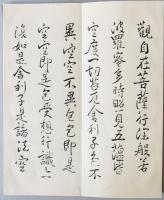 觀自在菩薩行深般若
波羅蜜多時照見五蘊皆
空度一切苦厄舍利子色不
異空空不異色色即是
空空即是色受想行識亦
復如是舍利子是諸法空